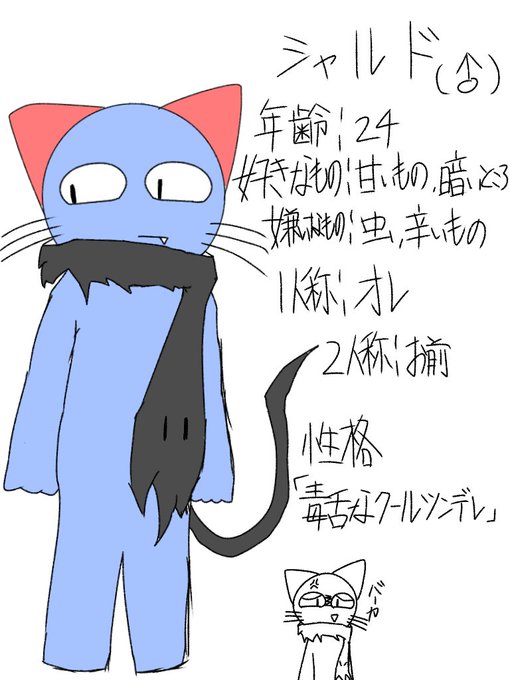 シャルド(♂)
年齢¦24
好きなもの¦甘いもの、暗いところ
嫌いなもの¦虫、辛いもの
1人称¦オレ
2人称¦お前
性格
「毒舌なクールツンデレ」
バーカ